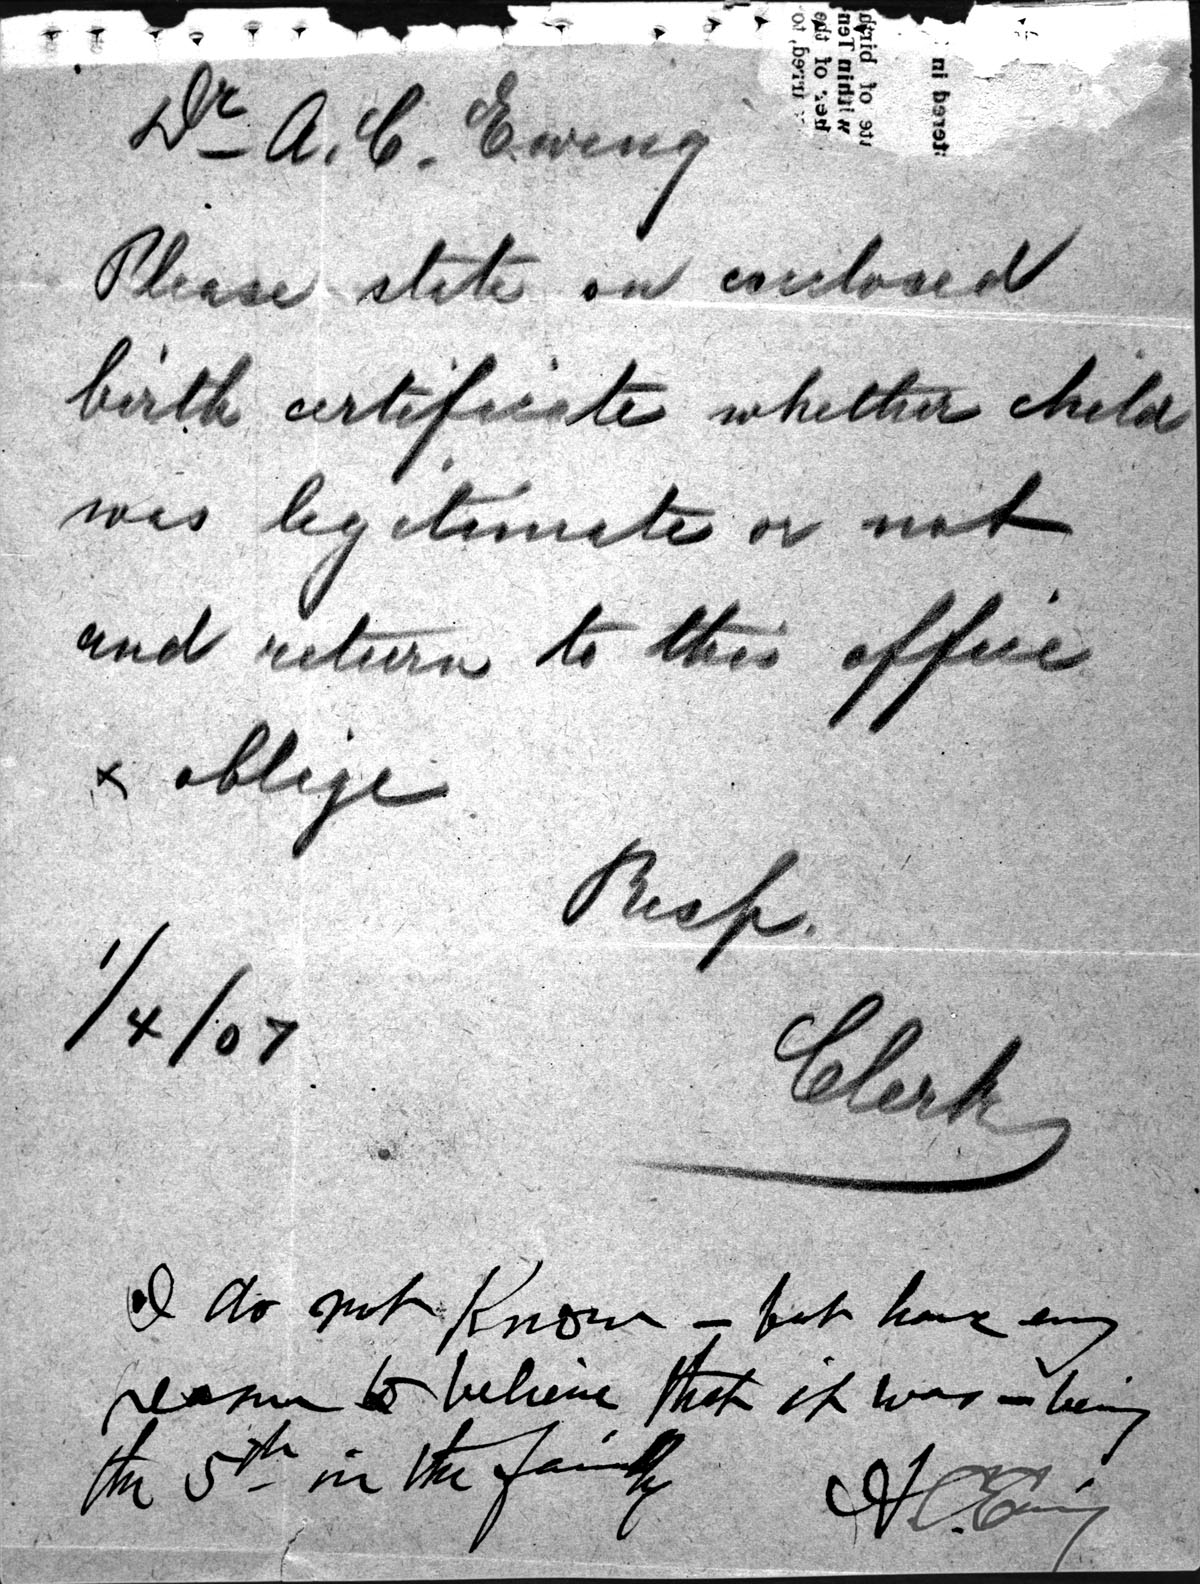 Dr A. C. Ewing
Please state on enclosed
birth certificate whether child
was legitimate or not
and return to this office
& oblige
Resp.
1/4/07
Clerk
I do not Know – but have every
reason to believe that it was – being
the 5th in the family
A. C. Ewing